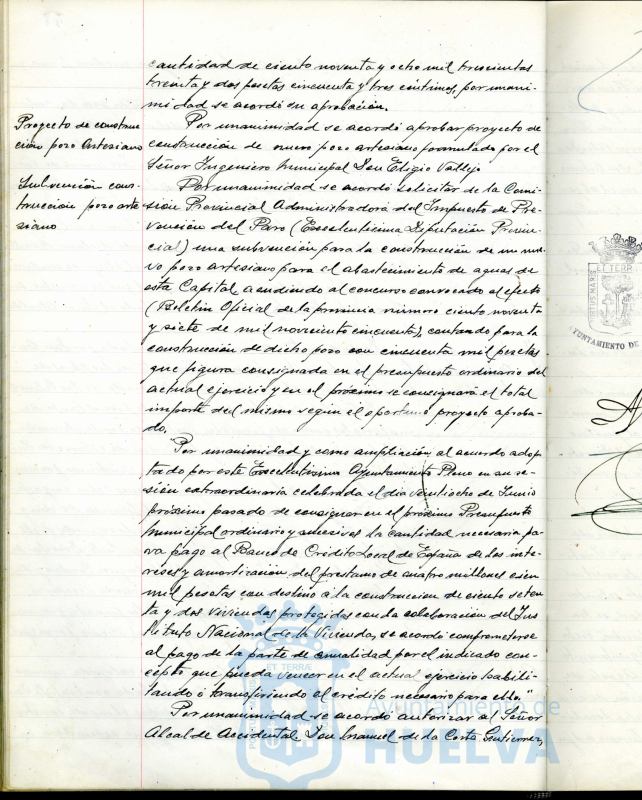 cantidad de ciento noventa y ocho mil trescientas
treinta y dos pesetas cincuenta y tres centimos, por unani-
midad se acordó su aprobación.
Proyecto de construc
cion pozo Artesiano
Por unanimidad se acordó aprobar proyecto de
construcción de nuevo pozo artesiano formulado por el
Señor Ingeniero Municipal Don Eligio Vallejo
Subvención cons-
trucción pozo arte
siano
Por unanimidad se acordó solicitar de la Comi-
sión Provincial Administradora del Impuesto de Pre-
vensión del Paro (Excelentísima Diputación Provin-
cial) una subvención para la construcción de un nue-
vo pozo artesiano para el abastecimiento de aguas de
esta Capital acudiendo al concurso convocado al efecto
(Boletin Oficial de la provincia número ciento noventa
y siete de mil novecientos cincuenta), contando para la
construcción de dicho pozo con cincuenta mil pesetas
que figura consignada en el presupuesto ordinario del
actual ejercicio y en el próximo se consignará el total
importe del mismo según el oportuno proyecto aproba-
do.
Por unanimidad y como ampliación al acuerdo adop-
tado por este Excelentísimo Ayuntamiento Pleno en su se-
sión extraordinaria celebrada el día veintiocho de Junio
próximo pasado de consignar en el próximo Presupuesto
Municipal ordinario y sucesivos la cantidad necesaria pa-
ra pago al Banco de Crédito Local de España de los inte-
reses y amortización del prestamo de cuatro millones cien
mil pesetas con destino a la construcción de ciento seten-
ta y dos viviendas protegidas con la colaboración del Ins-
tituto Nacional de la Vivienda, se acordó comprometerse
al pago de la parte de anualidad por el indicado con-
cepto que pueda vencer en el actual ejercicio habili-
tando ó transfiriendo el crédito necesario para ello."
Por unanimidad se acordó autorizar al Señor
Alcalde Accidental Don Manuel de la Corte Gutierrez,
AYUNTAMIENTO DE
Ayuntamiento de
HUELVA